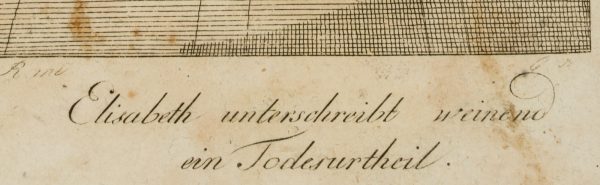 Elisabeth unterschreibt weinend
ein Todesurtheil.